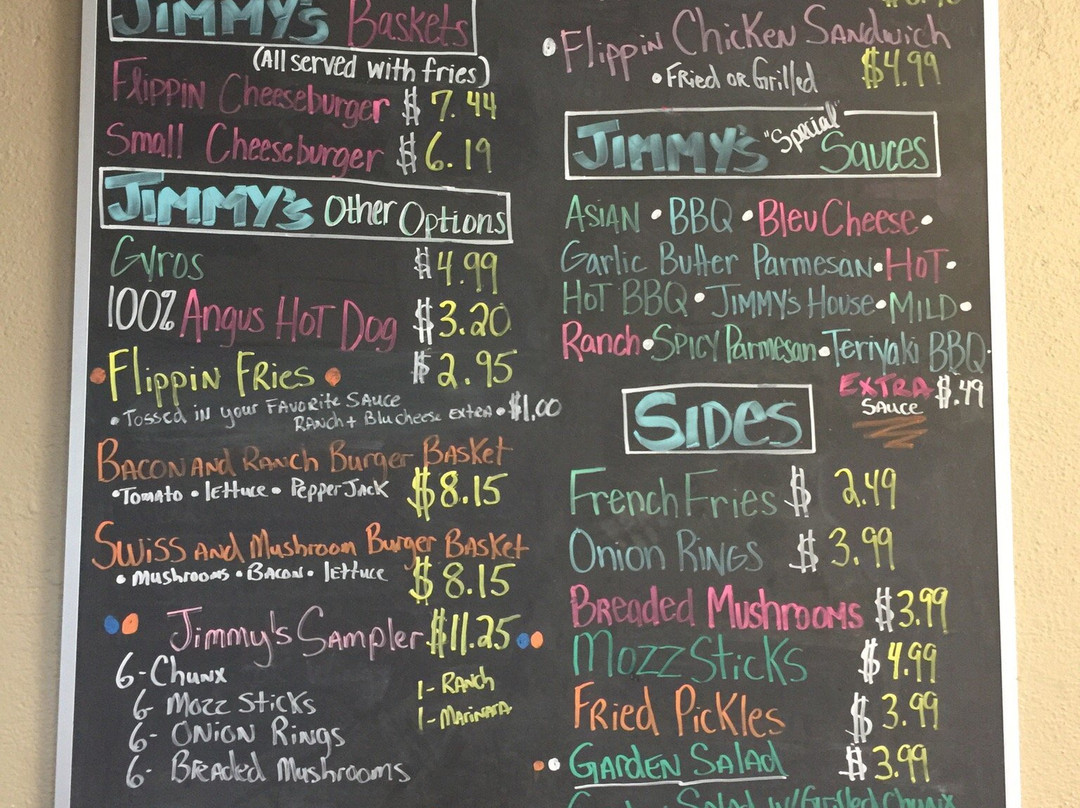 JIMMY'S Baskets
(All served with fries)
Flippin Cheeseburger $7.44
Small Cheeseburger $6.19
JIMMY'S Other Options
Gyros $4.99
100% Angus Hot Dog $3.20
Flippin Fries $2.95
• Tossed in your FAVORITE SAUCE
RANCH + Blu cheese extra • $1.00
BACON AND RANCH Burger BASKET
• Tomato • lettuce • Pepper Jack $8.15
Swiss And Mushroom Burger BASKET
• Mushrooms • Bacon • lettuce $8.15
Jimmy's Sampler $11.25
6-Chunx
6- Mozz Sticks
6- Onion Rings
6- Breaded Mushrooms
1- RANCH
1- MARINARA
Flippin Chicken Sandwich
• Fried or Grilled $4.99
JIMMY'S "Special" Sauces
Asian • BBQ • Bleu Cheese •
Garlic Butter Parmesan • Hot •
Hot BBQ • Jimmy's House • Mild •
Ranch • Spicy Parmesan • Teriyaki BBQ
EXTRA SAUCE $.49
SIDES
French Fries $2.49
Onion Rings $3.99
Breaded Mushrooms $3.99
Mozz Sticks $4.99
Fried Pickles $3.99
Garden Salad $3.99
Garden Salad w/Grilled Chunx